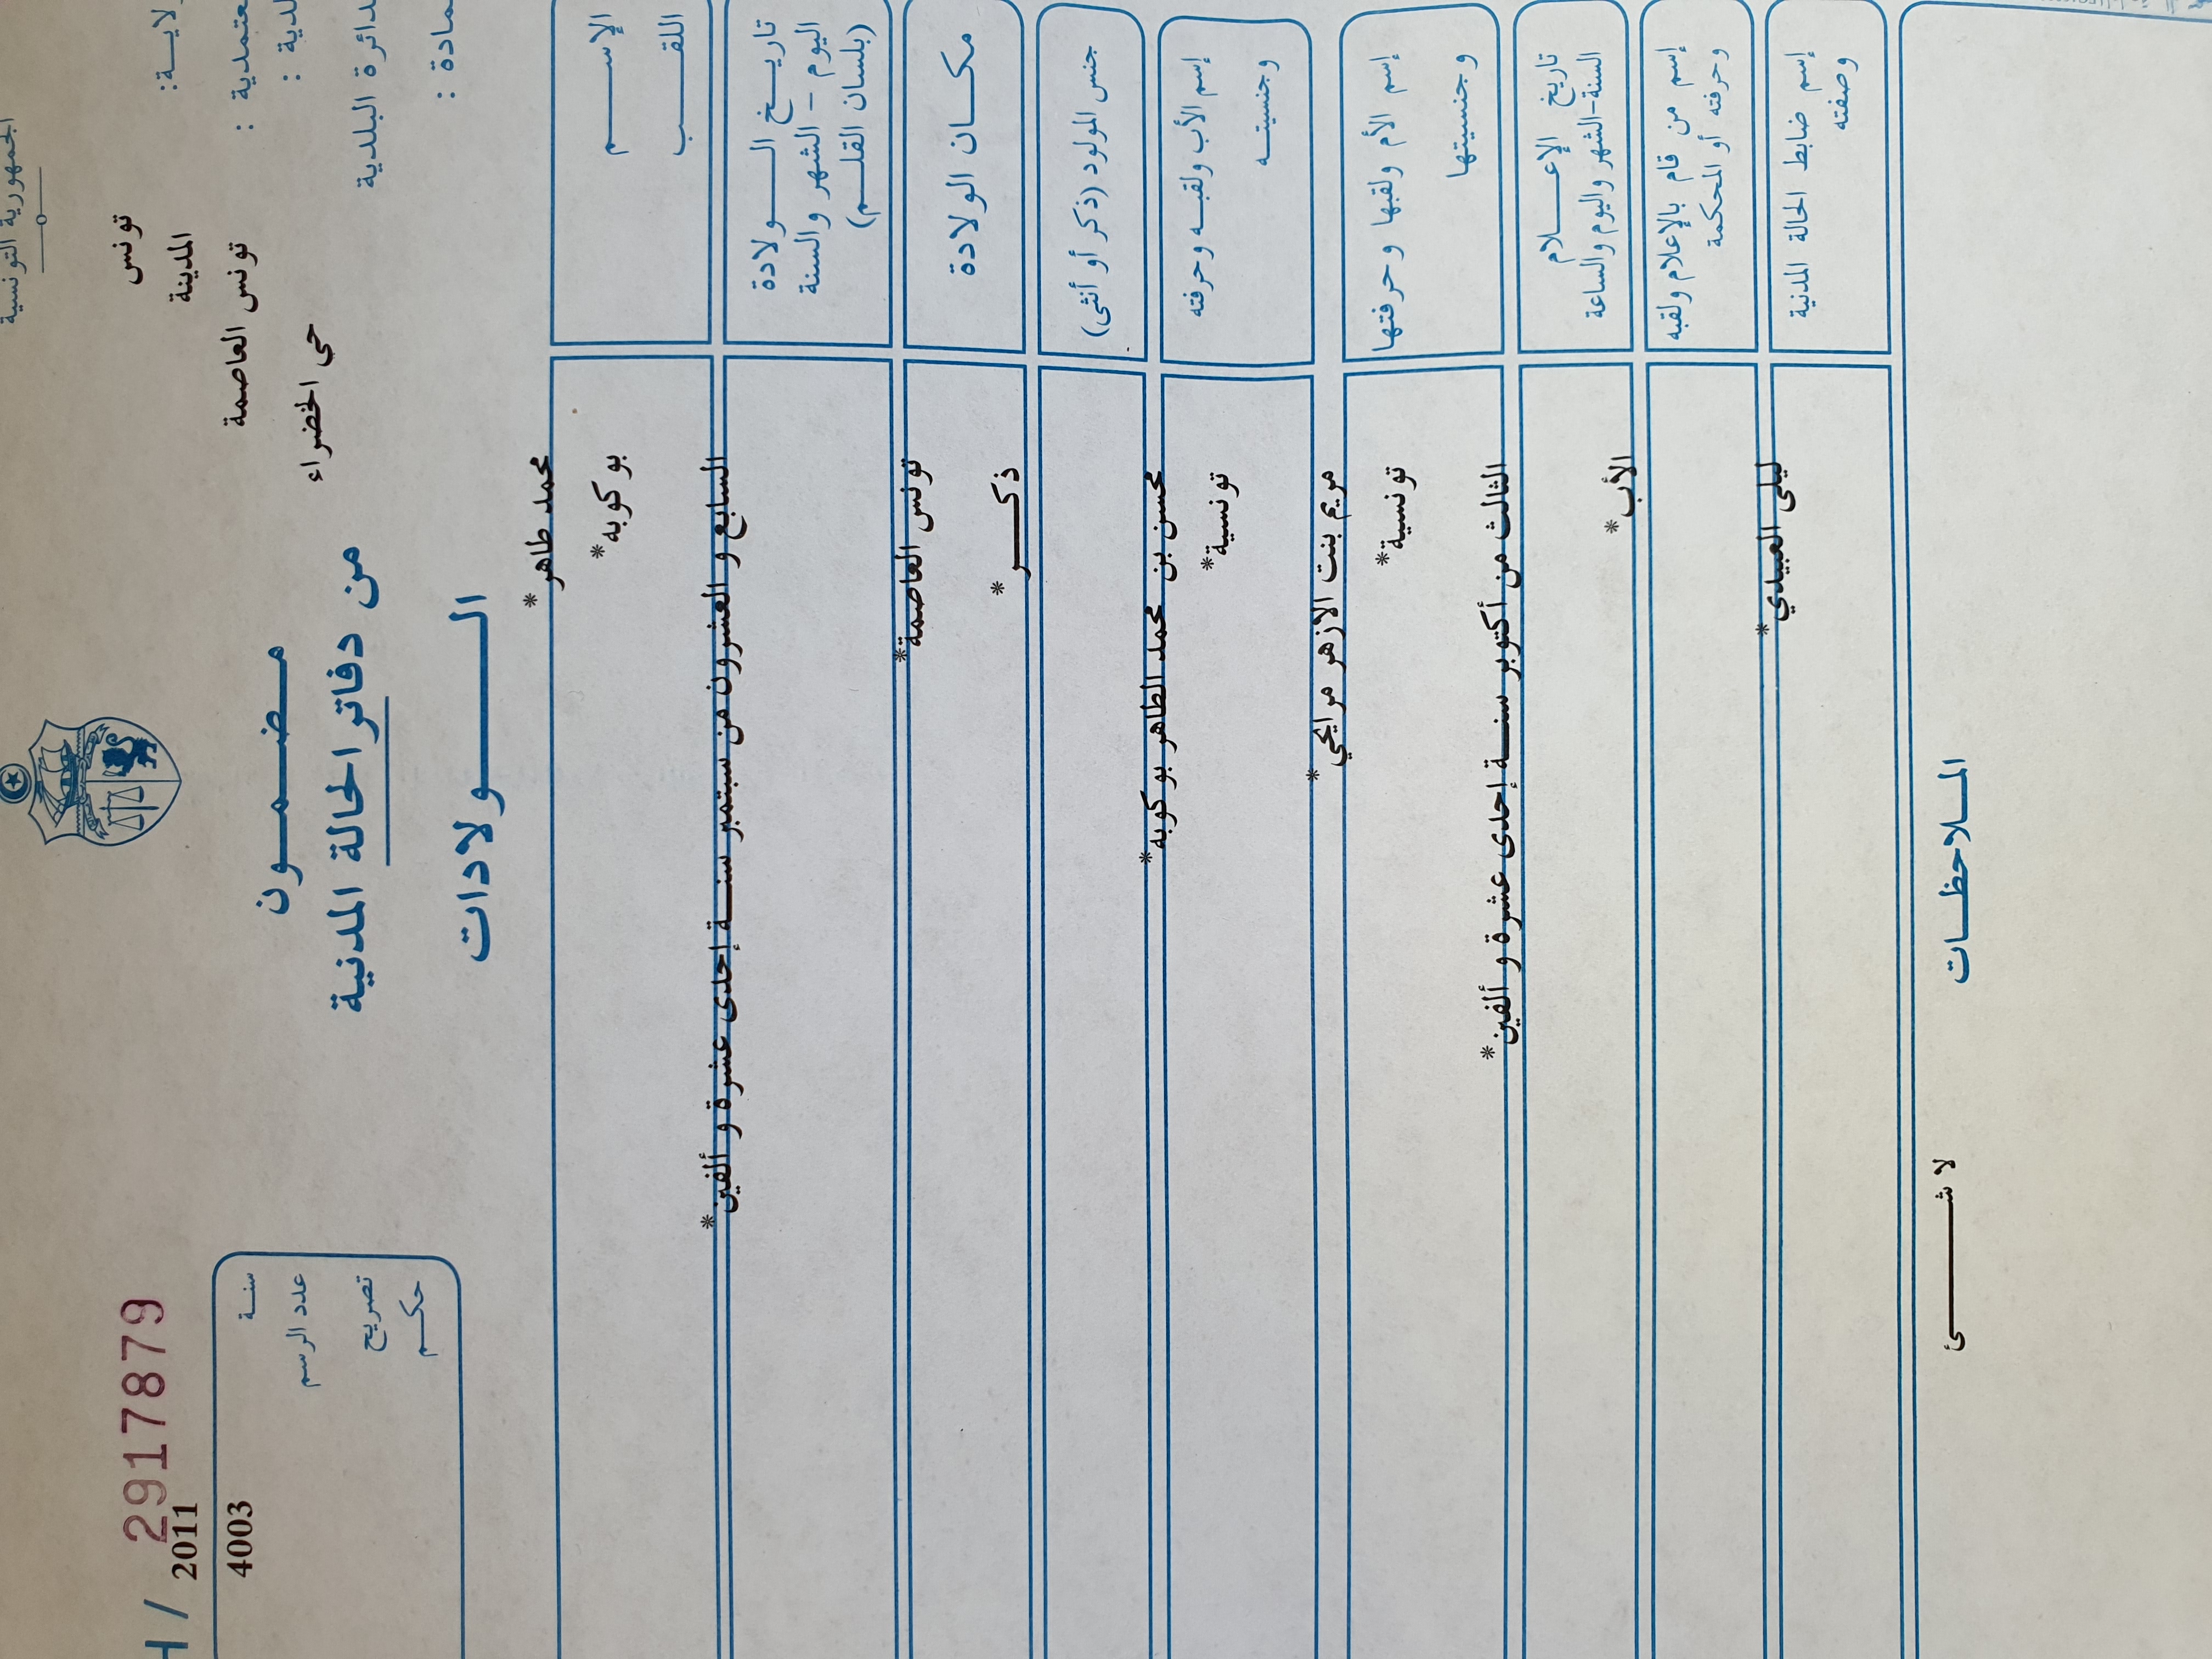 الجمهورية التونسية
H / 2917879
تونس
المدينة
2011
سنة
تونس العاصمة
4003
عدد الرسم
حي الخضراء
تصريح
حكم
الدائرة البلدية
مضمون
من دفاتر الحالة المدنية
الولادات
الإسم
محمد طاهر*
اللقب
بوكوبه*
تاريخ الولادة
اليوم - الشهر والسنة
(بلسان القلم)
السابع و العشرون من سبتمبر سنة إحدى عشرة و ألفين*
مكان الولادة
تونس العاصمة*
جنس المولود (ذكر أو أنثى)
ذكر*
إسم الأب ولقبه وحرفته
وجنسيته
محسن بن محمد الطاهر بوكوبه*
تونسية*
إسم الأم ولقبها وحرفتها
وجنسيتها
مريم بنت الازهر مرايحي*
تونسية*
تاريخ الإعلام
السنة-الشهر واليوم والساعة
الثالث من أكتوبر سنة إحدى عشرة و ألفين*
إسم من قام بالإعلام ولقبه
وحرفته أو المحكمة
الأب*
إسم ضابط الحالة المدنية
وصفته
ليلى العبيدي*
الملاحظات
لا شئ